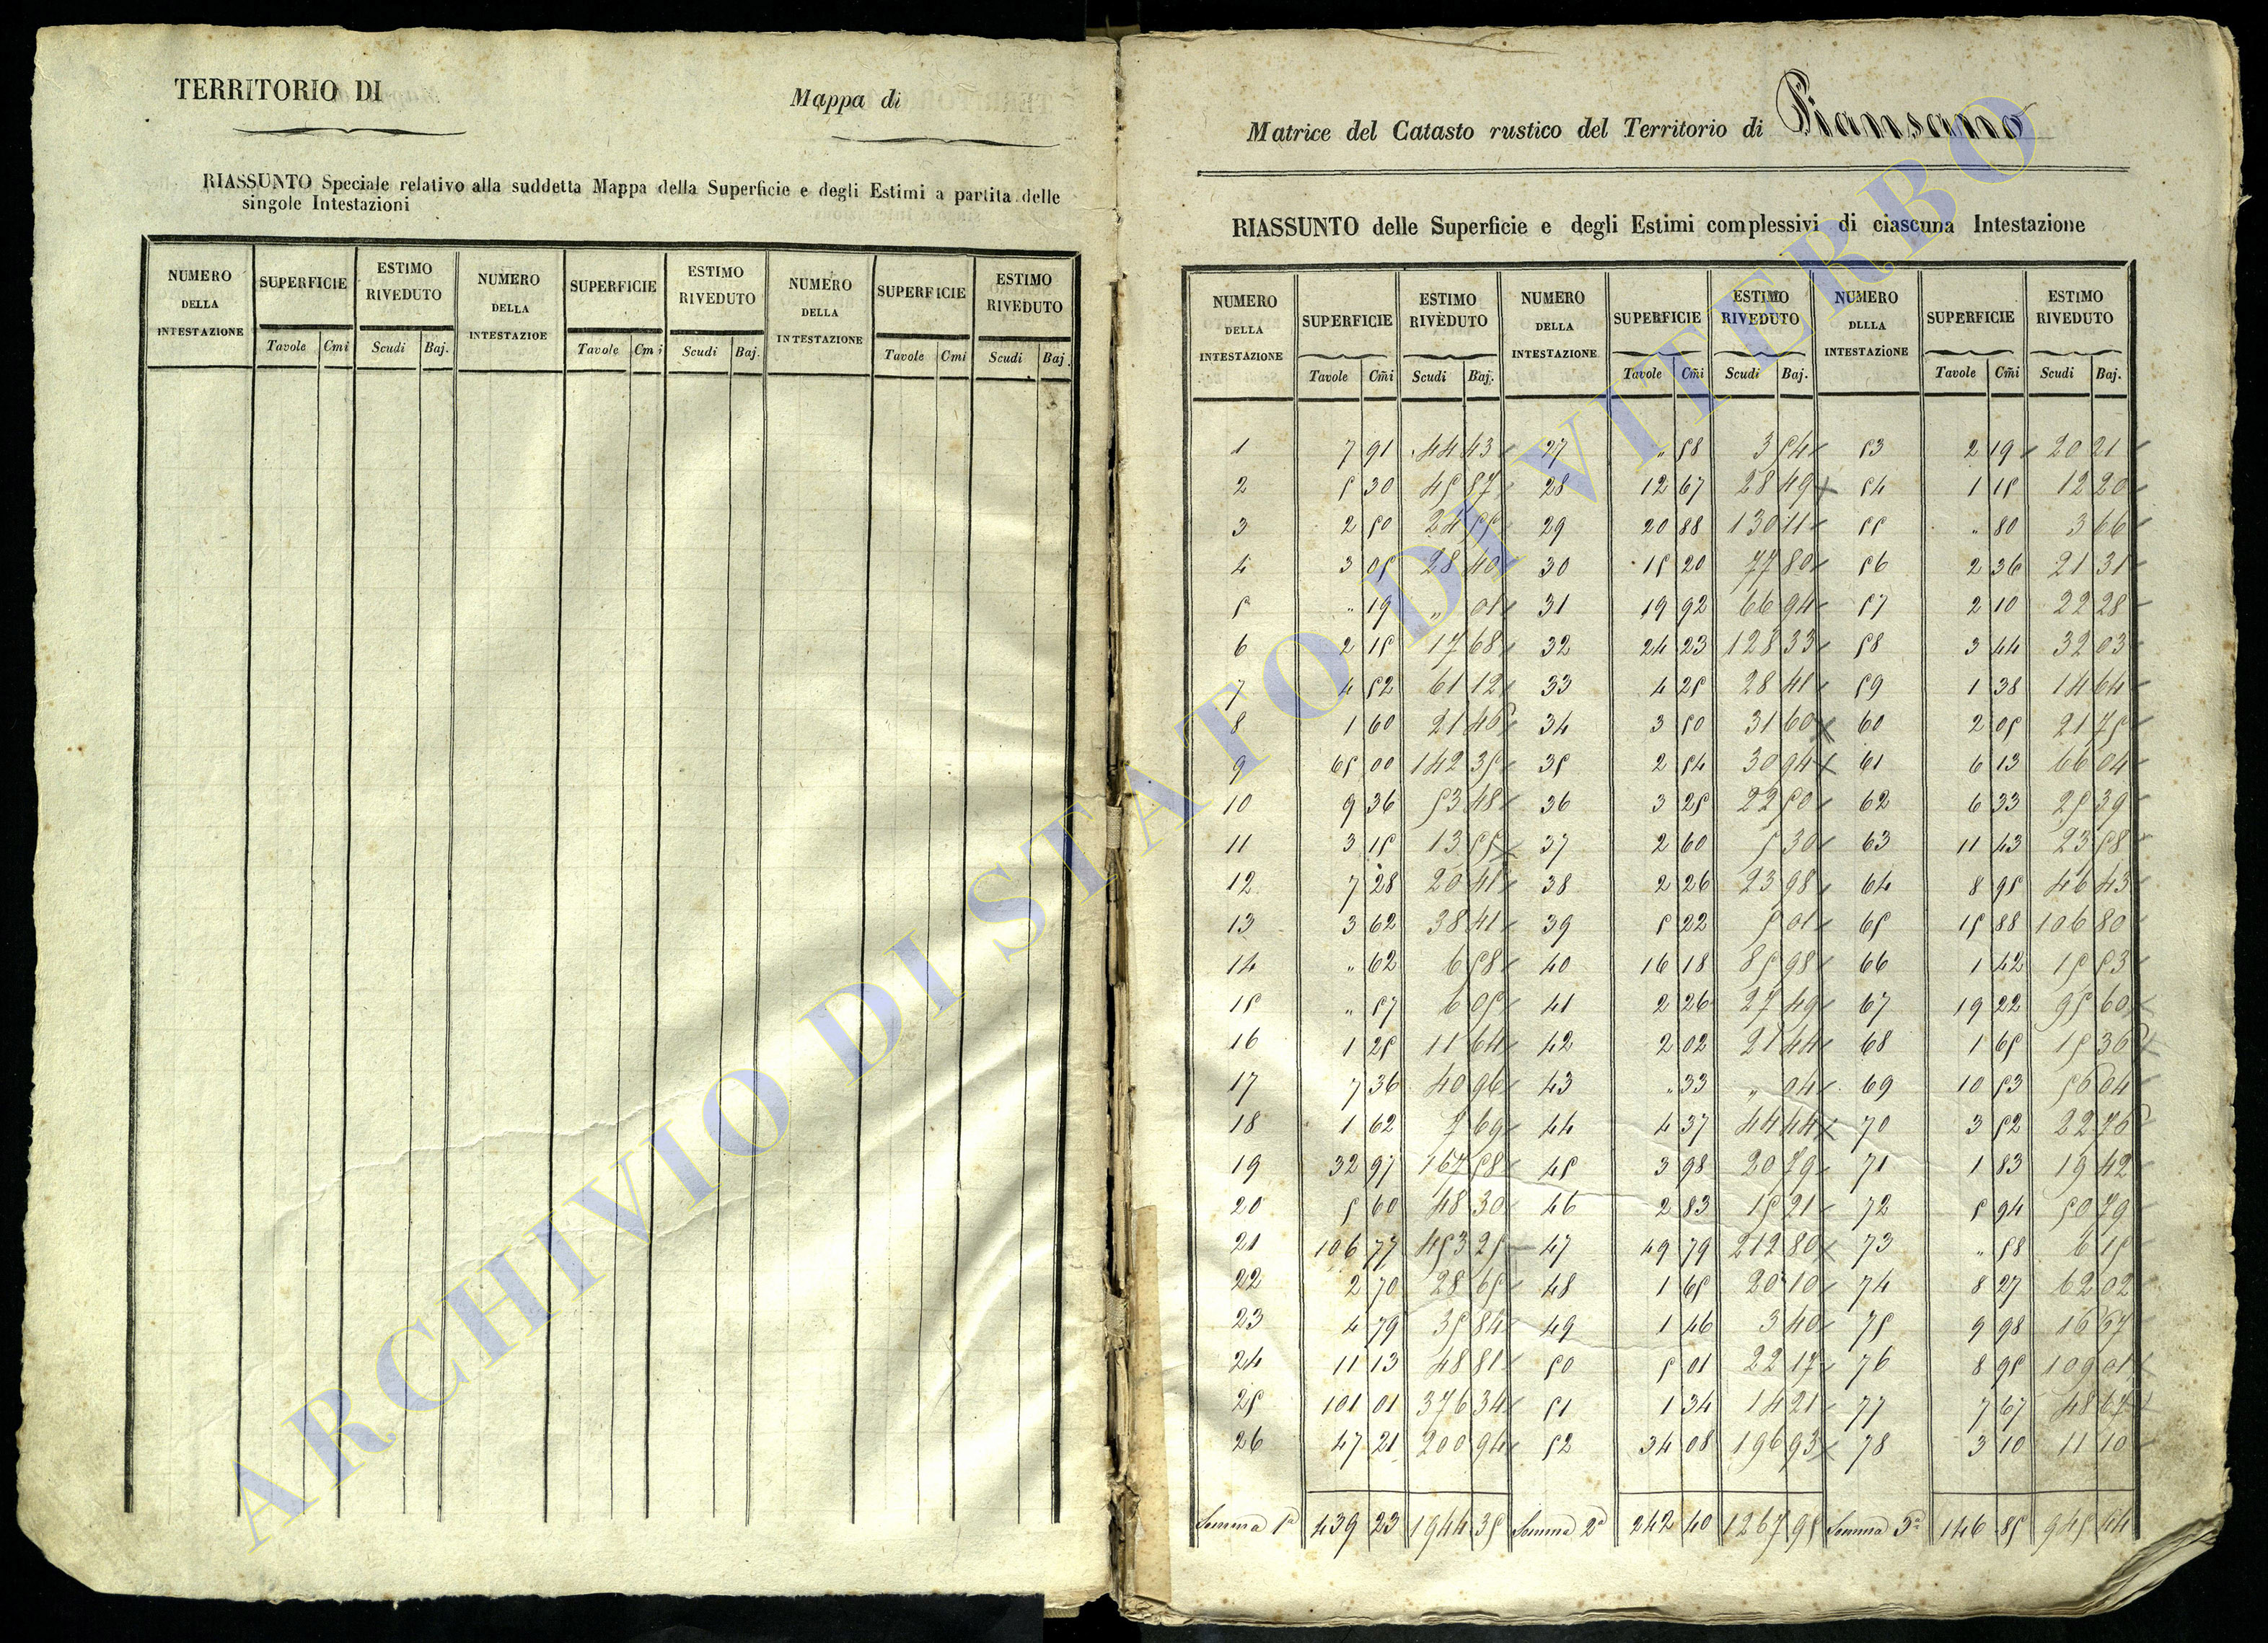 TERRITORIO DI
Mappa di
RIASSUNTO Speciale relativo alla suddetta Mappa della Superficie e degli Estimi a partita delle
singole Intestazioni
NUMERO DELLA INTESTAZIONE SUPERFICIE Tavole Cmi ESTIMO RIVEDUTO Scudi Baj. NUMERO DELLA INTESTAZIOE SUPERFICIE Tavole Cmi ESTIMO RIVEDUTO Scudi Baj. NUMERO DELLA INTESTAZIONE SUPERFICIE Tavole Cmi ESTIMO RIVEDUTO Scudi Baj.
Matrice del Catasto rustico del Territorio di Piansano
RIASSUNTO delle Superficie e degli Estimi complessivi di ciascuna Intestazione
NUMERO DELLA INTESTAZIONE SUPERFICIE Tavole Cm̃i ESTIMO RIVEDUTO Scudi Baj. NUMERO DELLA INTESTAZIONE SUPERFICIE Tavole Cm̃i ESTIMO RIVEDUTO Scudi Baj. NUMERO DLLLA INTESTAZIONE SUPERFICIE Tavole Cm̃i ESTIMO RIVEDUTO Scudi Baj.
1 7 91 44 43 27 " 58 3 54 53 2 19 20 21
2 5 30 45 87 28 12 67 28 49 54 1 15 12 20
3 2 50 24 55 29 20 88 130 11 55 " 80 3 66
4 3 05 28 40 30 15 20 77 80 56 2 36 21 31
5 " 19 " 01 31 19 92 66 94 57 2 10 22 28
6 2 15 17 68 32 24 23 128 33 58 3 44 32 03
7 4 52 61 12 33 4 25 28 41 59 1 38 14 64
8 1 60 21 46 34 3 50 31 60 60 2 05 21 75
9 65 00 142 35 35 2 54 30 94 61 6 13 66 04
10 9 36 53 48 36 3 25 22 50 62 6 33 25 39
11 3 15 13 55 37 2 60 5 30 63 11 43 23 58
12 7 28 20 41 38 2 26 23 98 64 8 95 46 43
13 3 62 38 41 39 5 22 5 01 65 15 88 106 80
14 " 62 6 58 40 16 18 85 98 66 1 42 15 53
15 " 57 6 05 41 2 26 27 49 67 19 22 95 60
16 1 25 11 64 42 2 02 21 44 68 1 65 15 36
17 7 36 40 96 43 " 33 " 04 69 10 53 56 04
18 1 62 7 69 44 4 37 44 44 70 3 52 22 76
19 32 97 167 58 45 3 98 20 79 71 1 83 19 42
20 5 60 48 30 46 2 83 15 21 72 5 94 50 79
21 106 77 453 25 47 49 79 212 80 73 " 58 6 15
22 2 70 28 65 48 1 65 20 10 74 8 27 62 02
23 4 79 35 84 49 1 46 3 40 75 9 98 16 67
24 11 13 48 81 50 5 01 22 17 76 8 95 109 01
25 101 01 376 34 51 1 34 14 21 77 7 67 48 67
26 47 21 200 94 52 34 08 196 93 78 3 10 11 10
Somma 1ª 439 23 1944 35 Somma 2ª 242 40 1267 95 Somma 3ª 146 85 945 44
ARCHIVIO DI STATO DI VITERBO